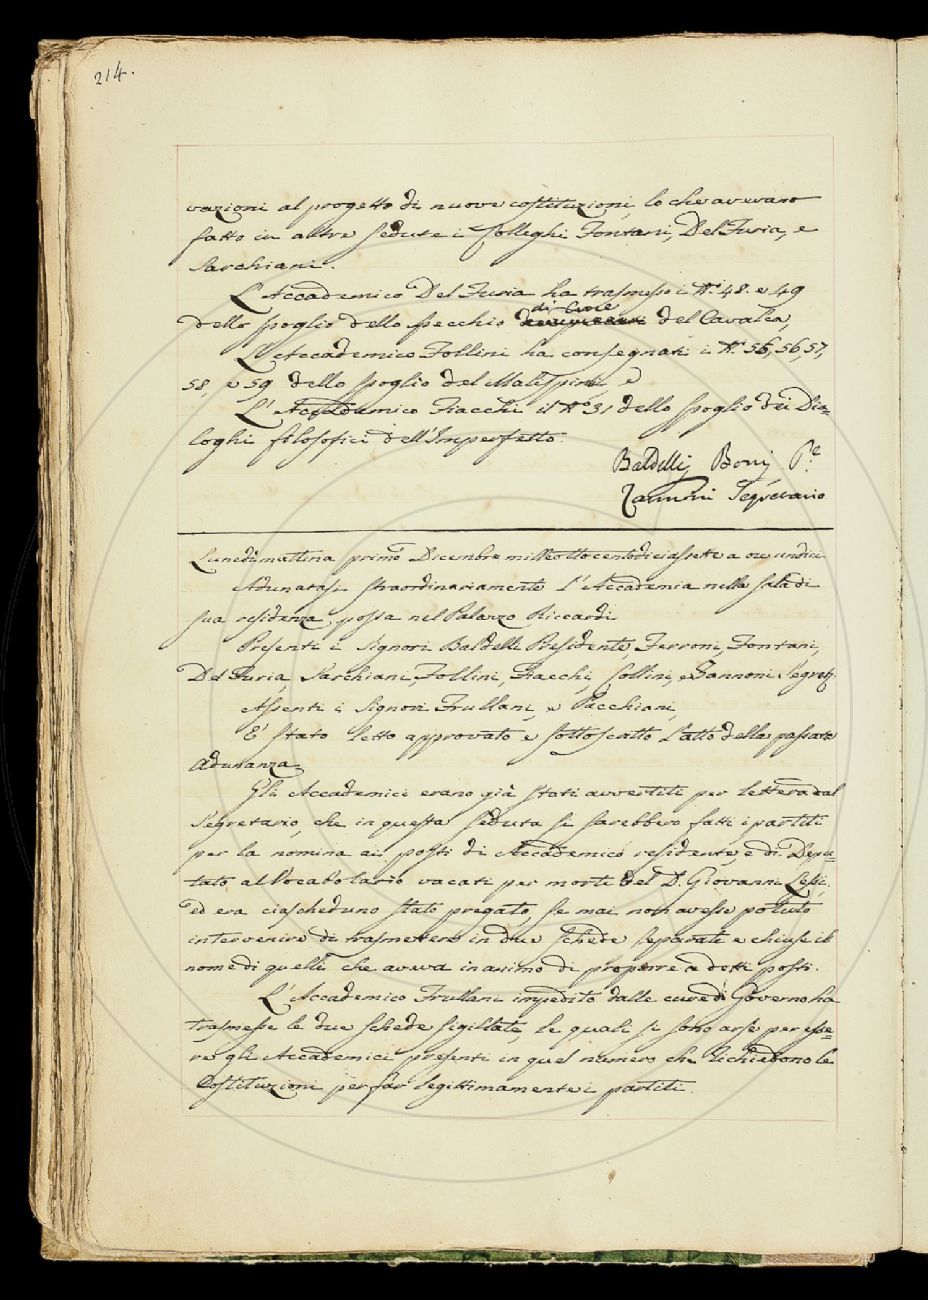 214.
vazioni al progetto di nuove costituzioni, lo che avevano
fatto in altre sedute i Colleghi Fontani, Del Furia, e
Sarchiani.
L'Accademico Del Furia ha trasmesso i N.i 48. e 49
di Croce
dello spoglio dello specchio del Cavalca,
L'Accademico Follini ha consegnati i N.i 56, 56, 57,
58, e 59 dello spoglio del Malispini, e
L'Accademico Fiacchi il N.o 31 dello spoglio dei Dia=
loghi filosofici dell'Imperfetto.
Baldelli Boni P.e
Zannoni Segretario
Lunedì mattina primo Dicembre milleottocentodiciassette a ore undici
Adunatasi straordinariamente l'Accademia nella Sala di
sua residenza, posta nel Palazzo Riccardi
Presenti i Signori Baldelli Presidente, Ferroni, Fontani,
Del Furia, Sarchiani, Follini, Fiacchi, Collini, e Zannoni Segret.
Assenti i Signori Frullani, e Pacchiani,
E' stato letto approvato e sottoscritto l'atto della passata
adunanza.
Gli Accademici erano già stati avvertiti per lettera dal
Segretario, che in questa seduta si sarebbero fatti i partiti
per la nomina ai posti di Accademico residente, e di Depu=
tato al Vocabolario vacati per morte del D. Giovanni Lessi,
ed era ciascheduno stato pregato, se mai non avesse potuto
intervenire di trasmettere in due schede separate e chiuse il
nome di quelli che aveva in animo di proporre a detti posti.
L'Accademico Frullani impedito dalle cure di Governo ha
trasmesse le due schede sigillate, le quali si sono arse per esse=
re gli Accademici presenti in quel numero che richiedono le
Costituzioni per far legittimamente i partiti.